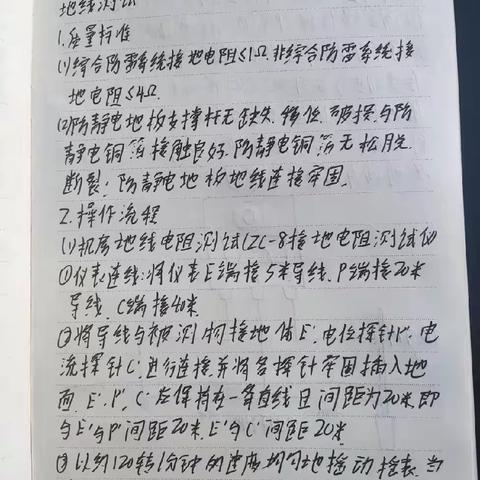 地线测试
1.质量标准
(1)综合防雷系统接地电阻≤1Ω.非综合防雷系统接
地电阻≤4Ω.
(2)防静电地板支撑杆无缺失、错位、破损,与防
静电铜箔接触良好.防静电铜箔无松脱、
断裂;防静电地板地线连接牢固.
2.操作流程
(1)机房地线电阻测试(ZC-8接地电阻测试仪)
①仪表连线:将仪表E端接5米导线、P端接20米
导线、C端接40米.
②将导线与被测物接地体E'、电位探针P'、电
流探针C'进行连接,并将各探针牢固插入地
面,E'、P'、C'应保持在一条直线且间距为20米,即
与E'与P'间距20米、E'与C'间距20米
③以约120转/分钟的速度均匀地摇动摇表.当